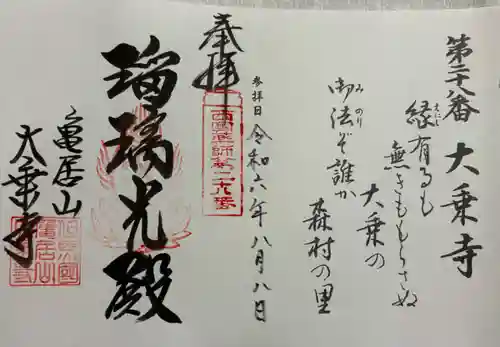 第二十八番 大乗寺
縁有るも
えにし
無きももらさぬ
大乗の
御法ぞ誰か
みのり
森村の里
奉拝
参拝日 令和六年八月八日
瑠璃光殿
亀居山
大乗寺